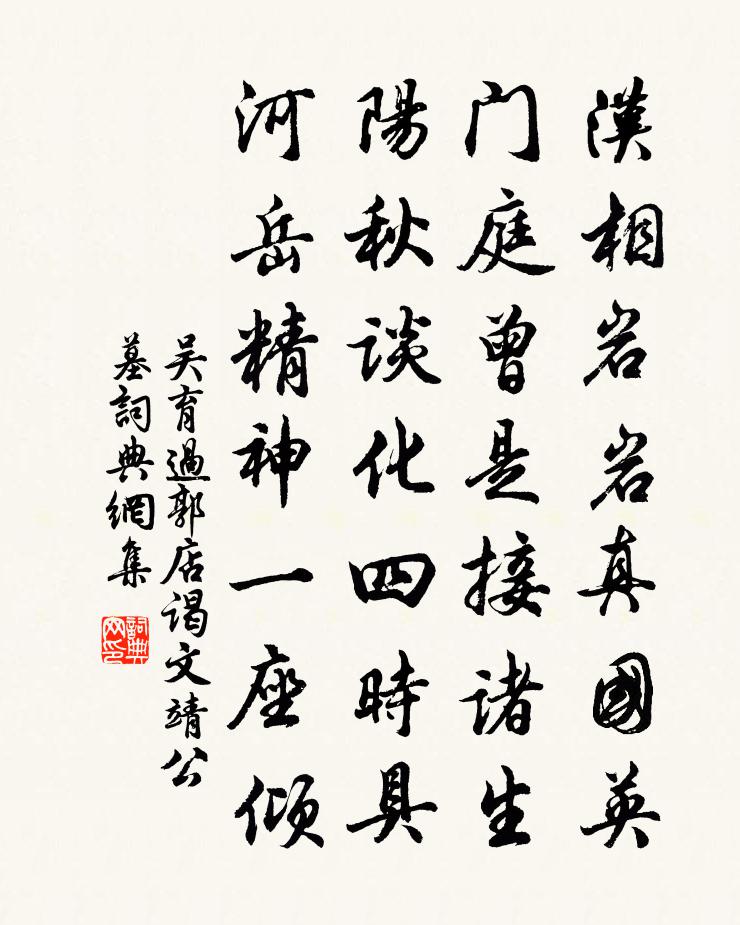 漢相岩岩真國英
門庭曾是接諸生
陽秋談化四時具
河岳精神一座傾
吴育過郭店谒文靖公
墓詞典網集
詞典
网印